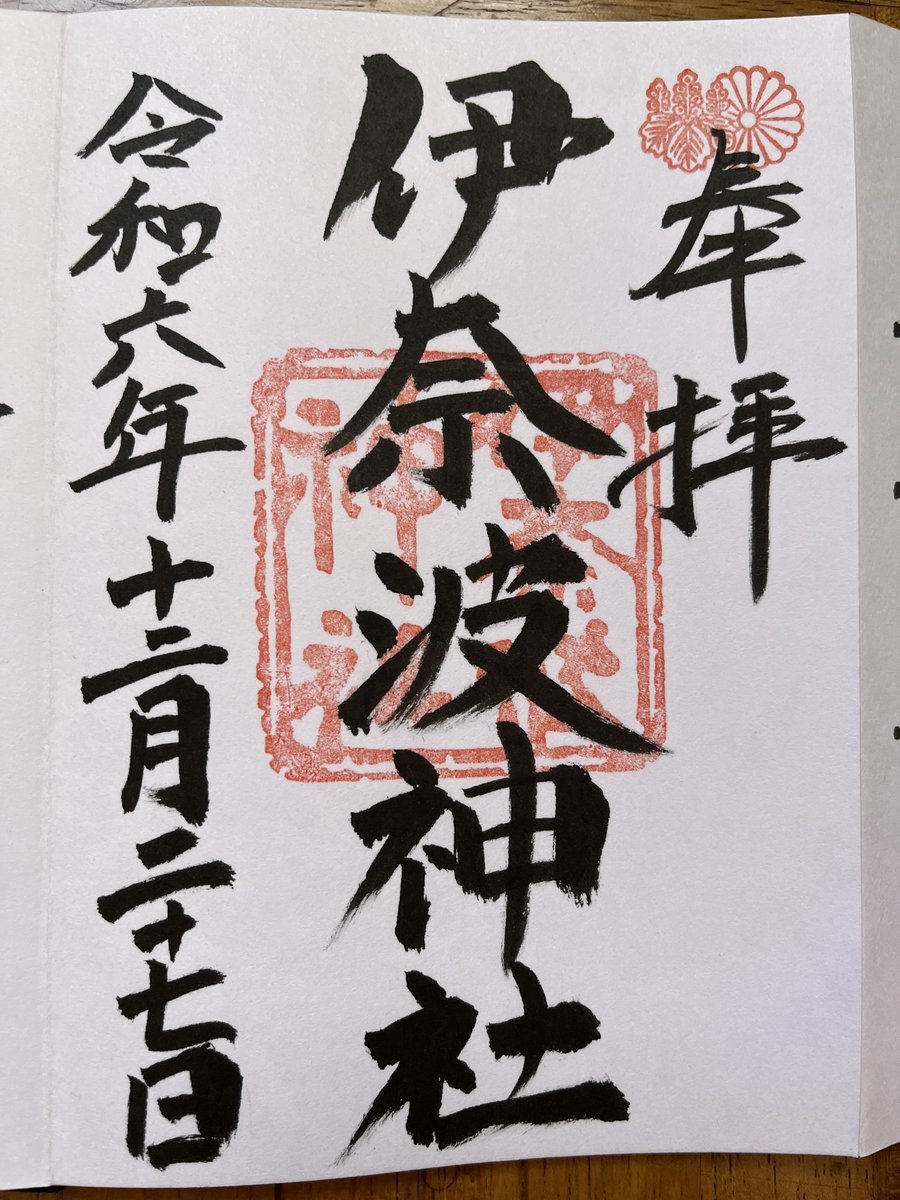 奉拝
伊奈波神社
令和六年十二月二十七日